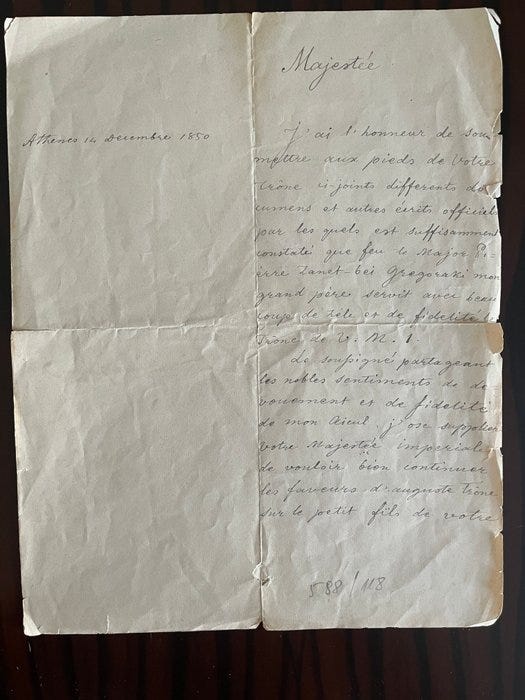 Majestée
Athenes 14 Decembre 1850
J'ai l'honneur de sou-
mettre aux pieds de Votre
trône ci-joints differents do
cumens et autres écrits officiels
par les quels est suffisamment
constaté que feu le Major Pi-
erre Zanet-bei Gregoraki mon
grand père servit avec beau
coup de zèle et de fidelité le
Trone de V. M. I.
Le soussigné partageant
les nobles sentiments de de-
vouement et de fidelité
de mon aieul j'ose supplier
Votre Majestée imperiale
de vouloir bien continuer
les faveurs d'auguste Trône
sur le petit fils de votre
588/118